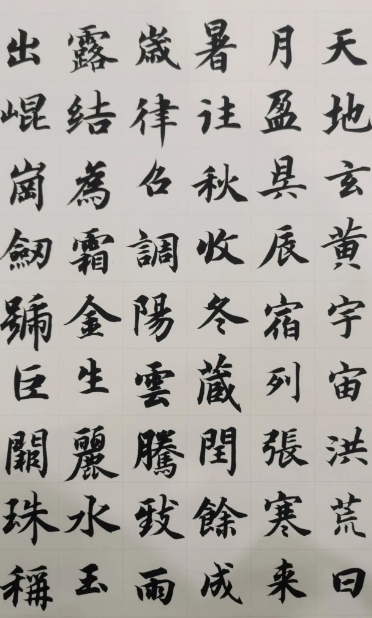 天地玄黄宇宙洪荒日
月盈昃辰宿列張寒来
暑往秋收冬蔵閏餘成
歳律召調陽雲騰致雨
露結為霜金生麗水玉
出崐崗劒號巨闕珠稱